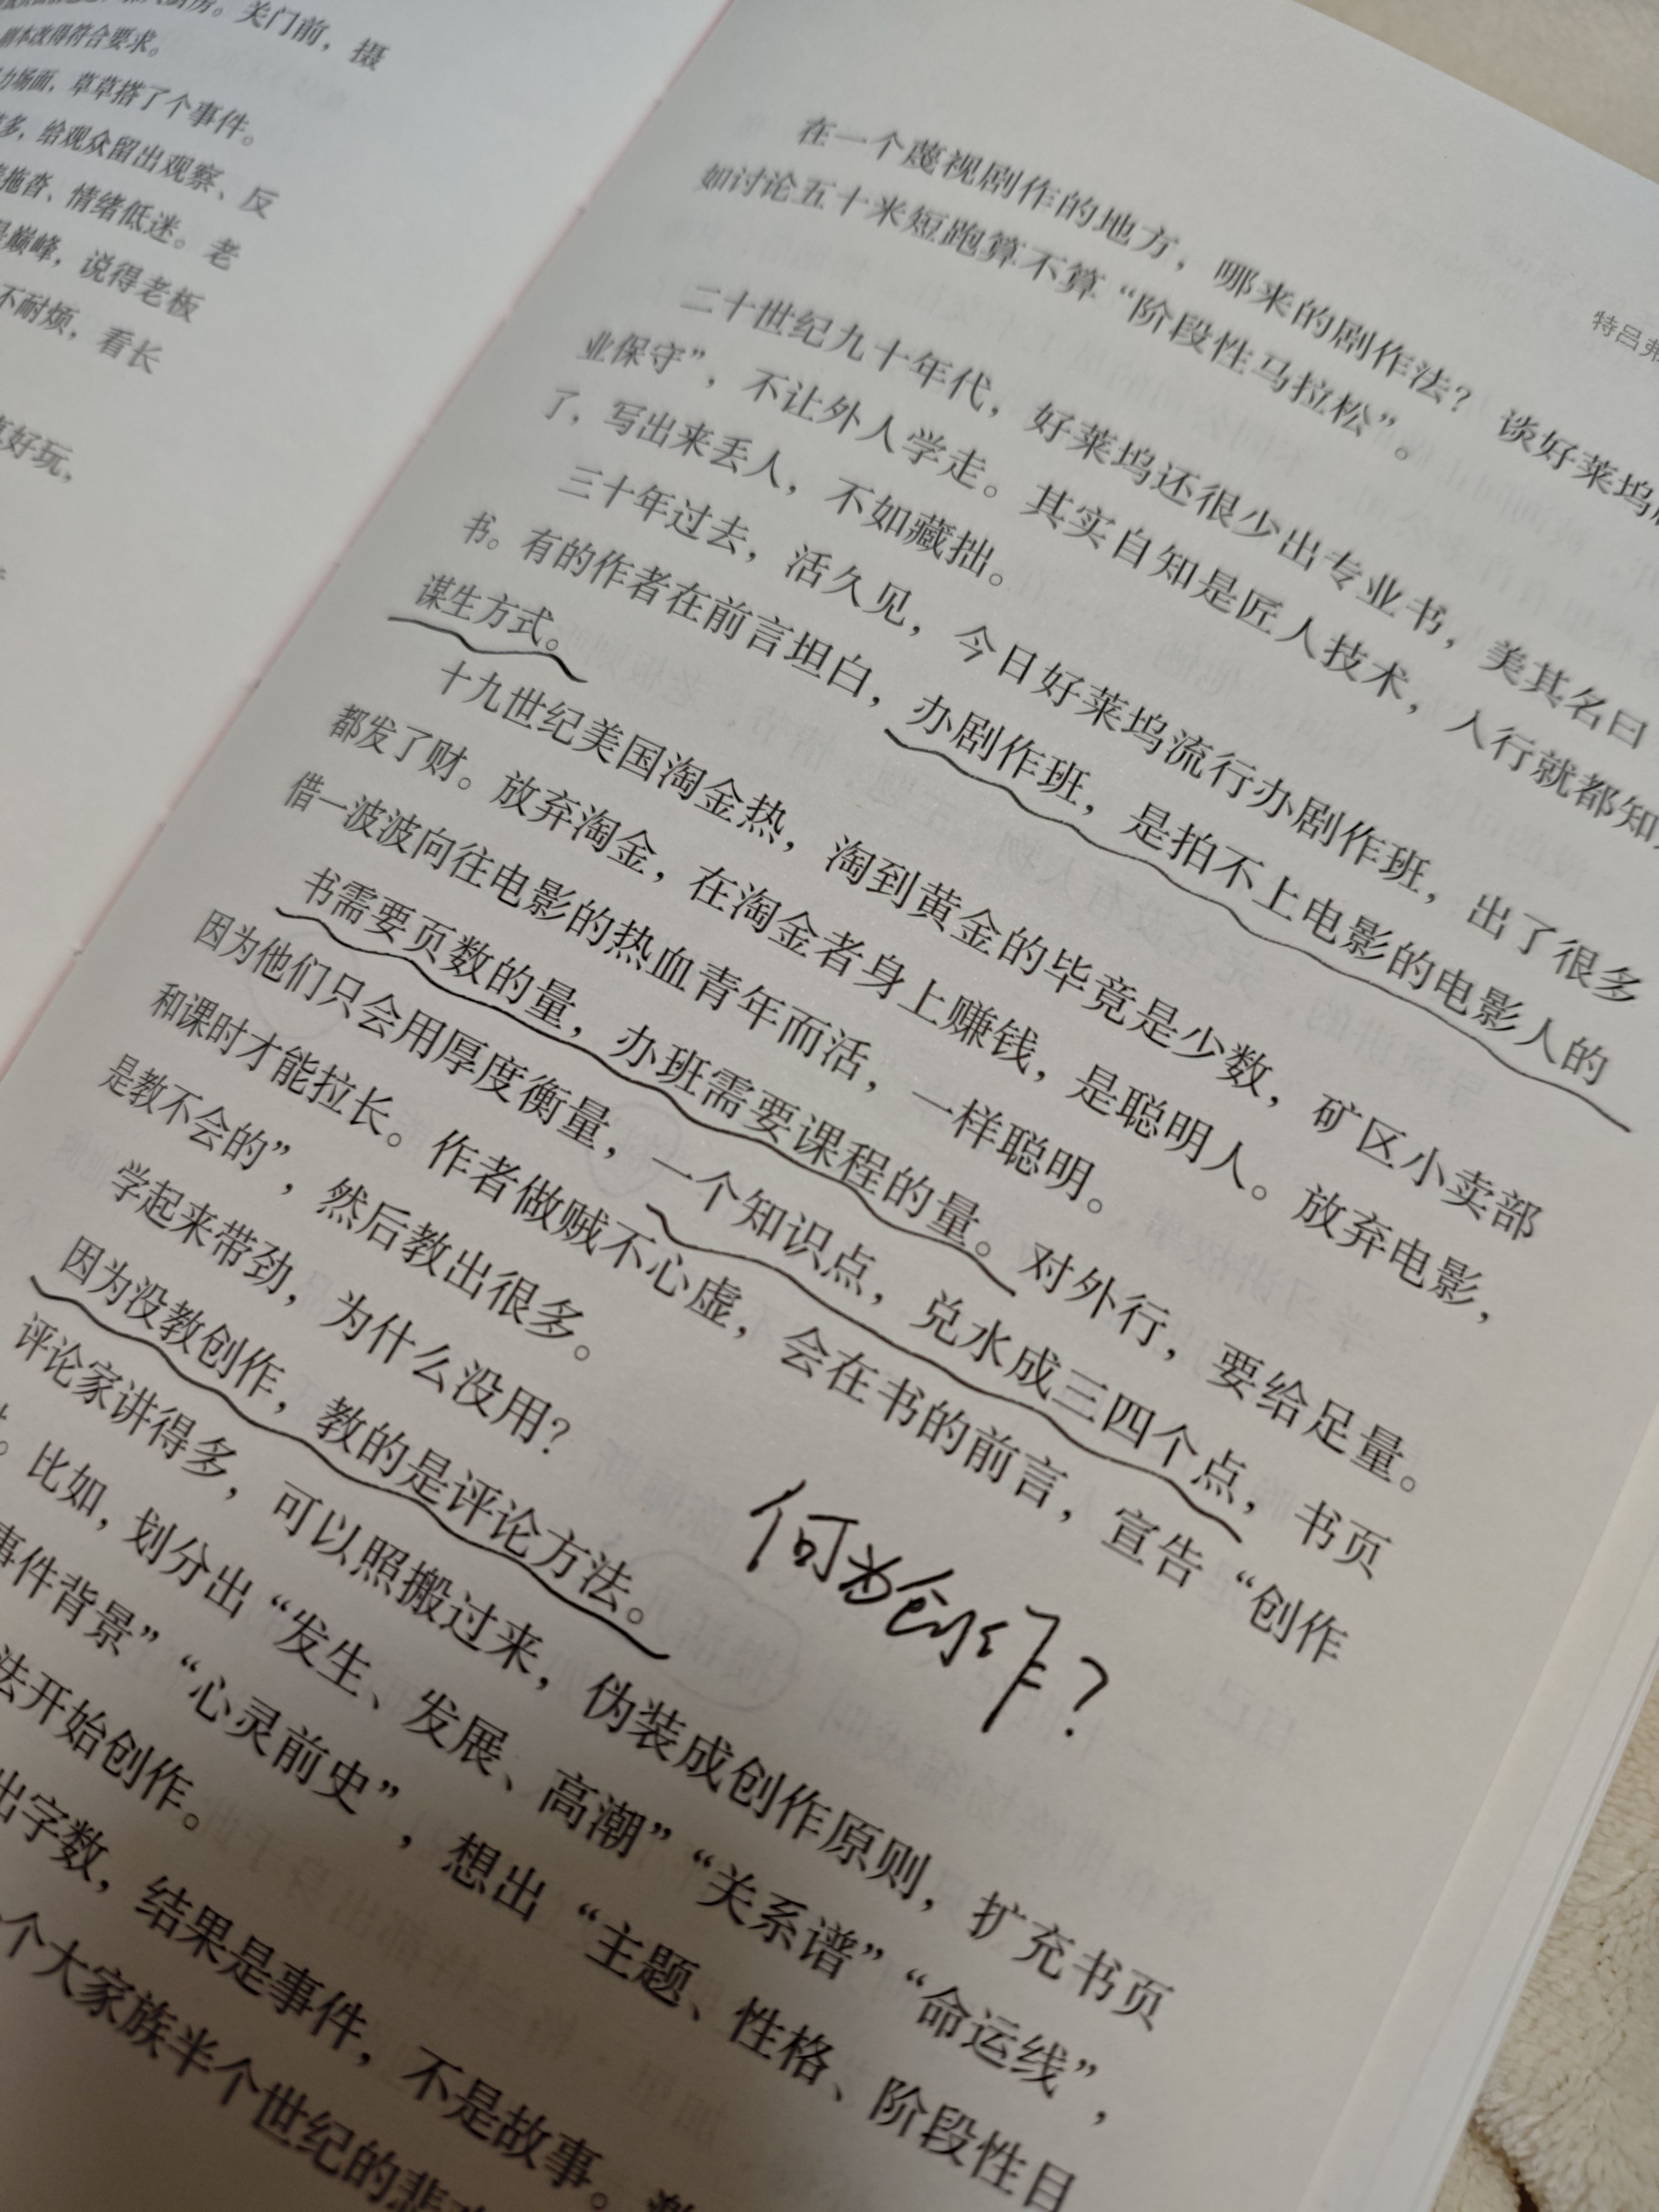 关门前，摄
剧本改得符合要求。
力场面，草草搭了个事件。
多，给观众留出观察、反
拖沓、情绪低迷。老
巅峰，说得老板
不耐烦，看长
好玩，
特吕弗
在一个蔑视剧作的地方，哪来的剧作法？谈好莱坞
如讨论五十米短跑算不算“阶段性马拉松”。
二十世纪九十年代，好莱坞还很少出专业书，美其名曰
业保守”，不让外人学走。其实自知是匠人技术，入行就都知
了，写出来丢人，不如藏拙。
三十年过去，活久见，今日好莱坞流行办剧作班，出了很多
书。有的作者在前言坦白，办剧作班，是拍不上电影的电影人的
谋生方式。
十九世纪美国淘金热，淘到黄金的毕竟是少数，矿区小卖部
都发了财。放弃淘金，在淘金者身上赚钱，是聪明人。放弃电影，
借一波波向往电影的热血青年而活，一样聪明。
书需要页数的量，办班需要课程的量。对外行，要给足量。
因为他们只会用厚度衡量，一个知识点，兑水成三四个点，书页
和课时才能拉长。作者做贼不心虚，会在书的前言，宣告“创作
是教不会的”，然后教出很多。
学起来带劲，为什么没用？
因为没教创作，教的是评论方法。
何为创作？
评论家讲得多，可以照搬过来，伪装成创作原则，扩充书页
。比如，划分出“发生、发展、高潮”“关系谱”“命运线”，
事件背景”“心灵前史”，想出“主题、性格、阶段性目
法开始创作。
出字数，结果是事件，不是故事。
个大家族半个世纪的悲